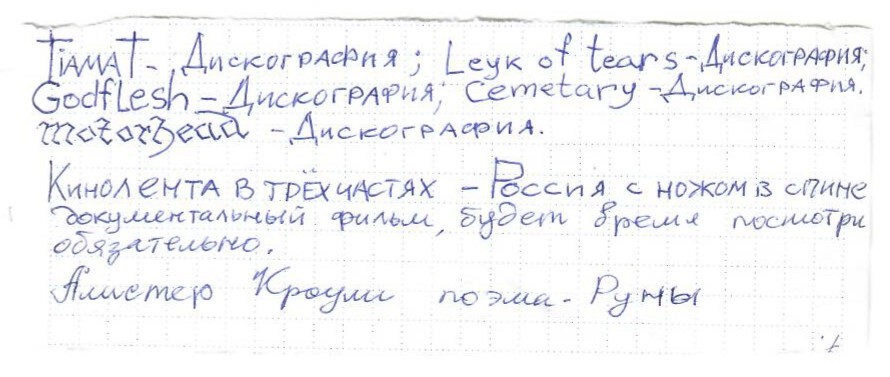 Tiamat - Дискография; Leyk of tears - Дискография;
Godflesh - Дискография; Cemetary - Дискография.
Motorhead - Дискография.
Кинолента в трёх частях - Россия с ножом в спине
документальный фильм, будет время посмотри
обязательно.
Алистер Кроули поэма - Руны